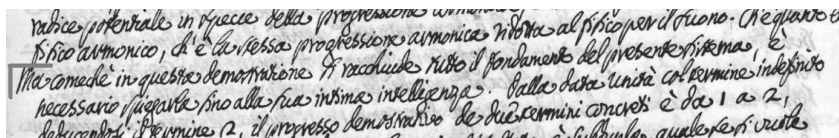 radice potenziale in specie della progressione armonica
fisico armonico, ch'è la stessa progressione armonica ridotta al fisico per il suono. Che quanto è
Ma comechè in questa demostrazione si racchiude tutto il fondamento del presente sistema, è
necessario spiegarla sino alla sua intima intelligenza. Dalla data unità col termine indefinito
deducendosi il termine 2, il progresso demostrativo de due termini concreti è da 1 a 2,
quale se si vuole